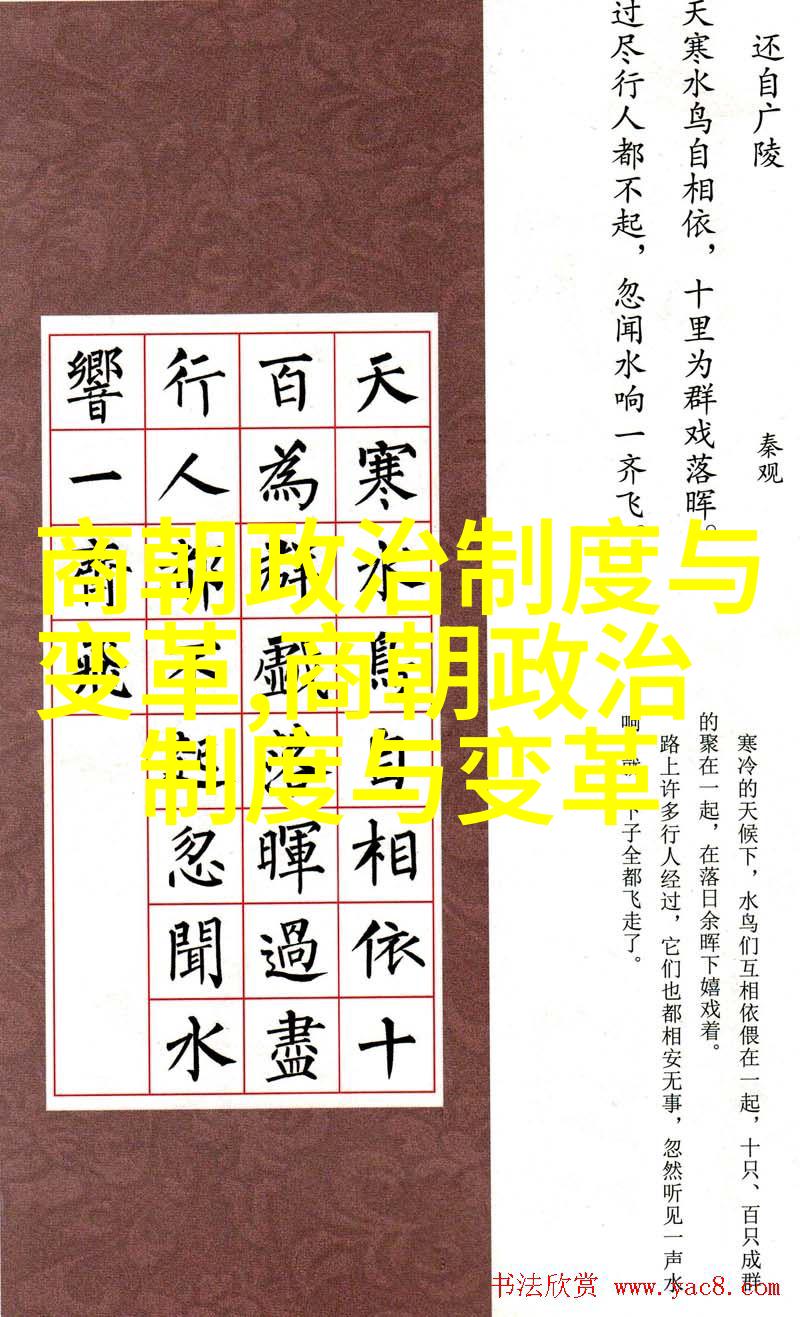 还自广陵
秦观
天寒水鸟自相依，十里为群戏落晖。
过尽行人都不起，忽闻水响一齐飞。
寒冷的天候下，水鸟们互相依偎在一起，十只、百只成群
的聚在一起，在落日余晖下嬉戏着。
路上许多行人经过，它们也都相安无事，忽然听见一声水
响 下子全都飞走了。
天寒水鳥自相依十
百為群戲落暉過盡
行人都不起忽聞水
響一齊飛
商朝政治制度与
变革,商朝政治
制度与变革
书法欣赏 www.yac8.com